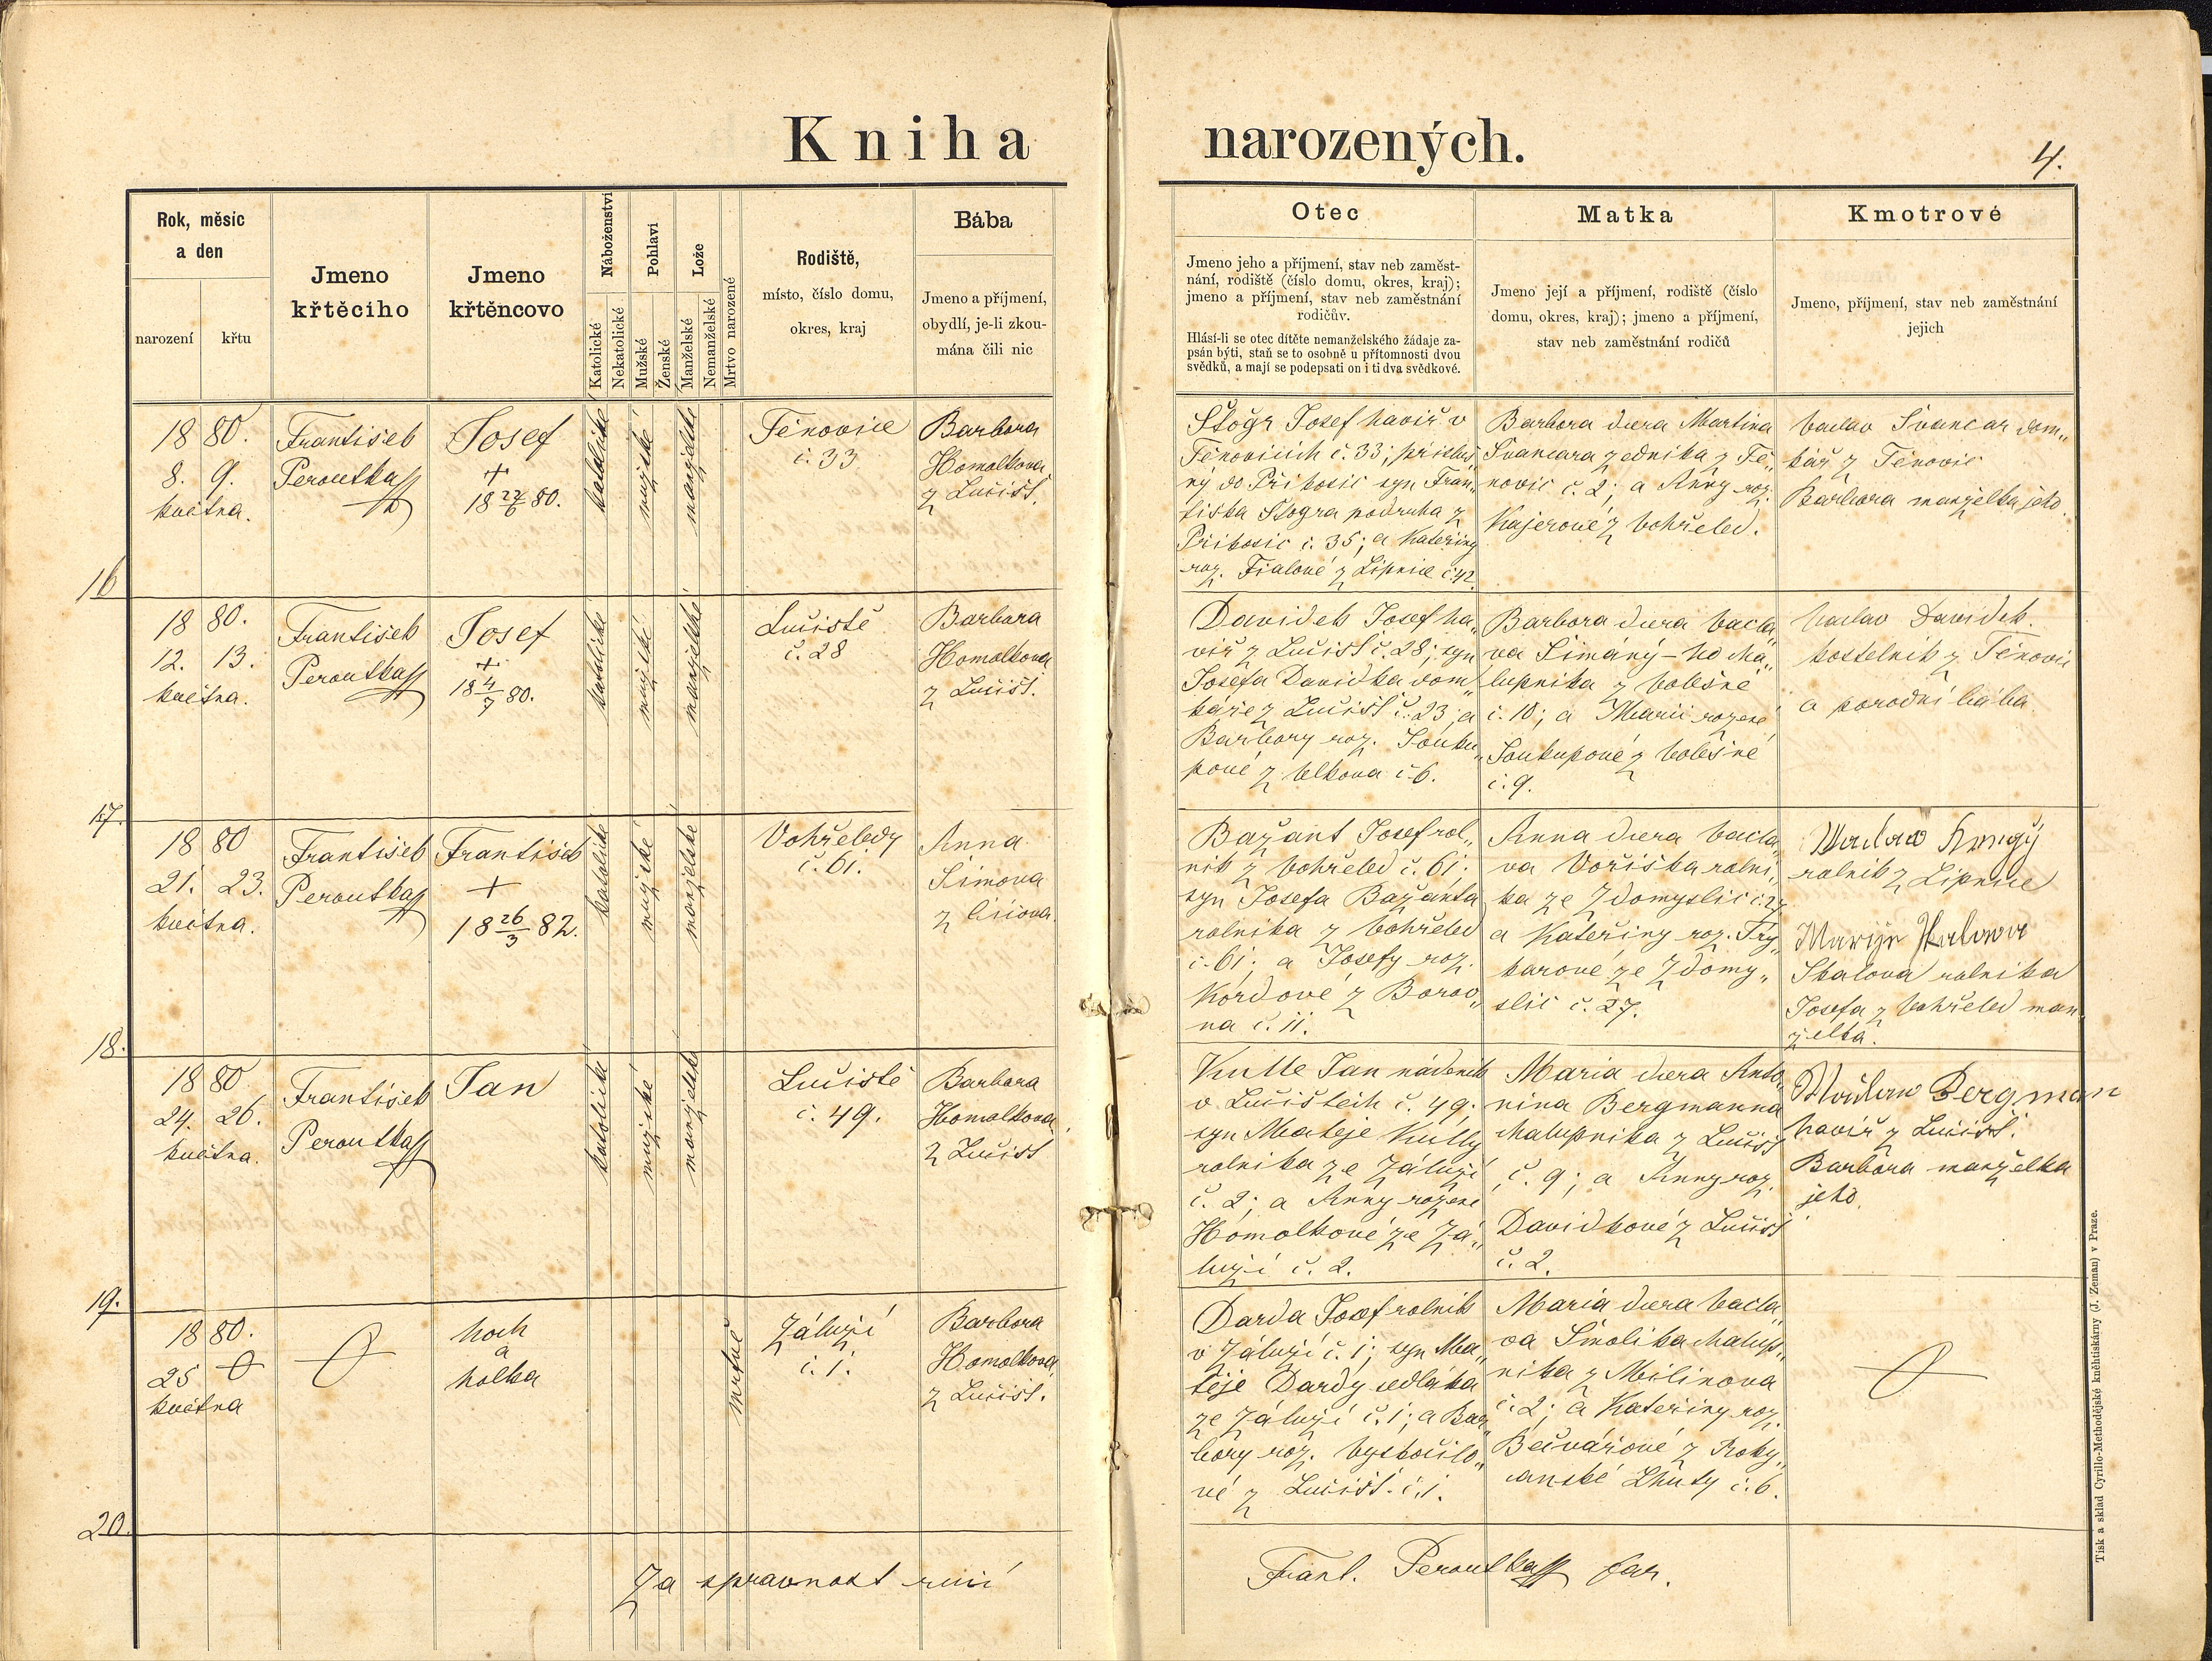 Kniha narozených.
4.
Rok, měsíc
a den
narození
křtu
Jmeno
křtěcího
Jmeno
křtěncovo
Náboženství
Katolické
Nekatolické
Pohlaví
Mužské
Ženské
Lože
Manželské
Nemanželské
Mrtvo narozené
Rodiště,
místo, číslo domu,
okres, kraj
Bába
Jmeno a příjmení,
obydlí, je-li zkou-
mána čili nic
Otec
Jmeno jeho a příjmení, stav neb zaměst-
nání, rodiště (číslo domu, okres, kraj);
jmeno a příjmení, stav neb zaměstnání
rodičův.
Hlásí-li se otec dítěte nemanželského žádaje za-
psán býti, staň se to osobně u přítomnosti dvou
svědků, a mají se podepsati on i ti dva svědkové.
Matka
Jmeno její a příjmení, rodiště (číslo
domu, okres, kraj); jmeno a příjmení,
stav neb zaměstnání rodičů
Kmotrové
Jmeno, příjmení, stav neb zaměstnání
jejich
16
18 80.
8. 9.
května.
František
Peroutka
Josef
+
18 27/6 80.
katolické
mužské
manželské
Těnovice
č. 33
Barbora
Homolkova
z Lučišť.
Štogr Josef havíř v
Těnovicích č. 33; přísluš„
ný do Přikosic syn Fran„
tiska Štogra podruha z
Přikosic č. 35; a Kateřiny
roz. Fialové z Lipnice č. 42.
Barbora dcera Martina
Švancara zednika z Tě„
novic č. 2; a Anny roz.
Kajerové z Vohřeled.
Vaclav Švancar dom„
kář z Těnovic
Barbora manželka jeho.
17.
18 80.
12. 13.
května.
František
Peroutka
Josef
+
18 4/7 80.
katolické
mužské
manželské
Lučiště
č. 28
Barbora
Homolkova
z Lučišť.
Davidek Josef ha„
víř z Lučišť č. 28; syn
Josefa Davidka dom„
káře z Lučišť č. 23; a
Barbory roz. Souku„
pové z Vlkova č. 6.
Barbora dcera Vacla„
va Šimáný-ho cha„
lupnika z Bolešné
č. 10; a Marii rozené
Soukupové z Bolešné
č. 9.
Vaclav Davidek.
kostelnik z Těnovic
a porodní bába
18.
18 80
21. 23.
května.
František
Peroutka
František
+
18 26/3 82.
katolické
mužské
manželské
Vohřeledy
č. 61.
Anna
Šimova
z Čičova.
Bažant Josef rol„
nik z Vohřeled č. 61;
syn Josefa Bažanta
rolnika z Vohřeled
č. 61; a Josefy roz.
Kordové z Borov„
na č. 11.
Anna dcera Vacla„
va Voříška rolni„
ka ze Zdomyslic č. 27
a Kateřiny roz. Try„
karové ze Zdomy„
slic č. 27.
rolnik z Lipnice
Skalova rolnika
Josefa z Vohřeled man
želka.
19.
18 80
24. 26.
května.
František
Peroutka
Jan
katolické
mužské
manželské
Lučiště
č. 49.
Barbora
Homolkova,
z Lučišť
Kutle Jan nádenik
v Lučištích č. 49;
syn Mateje Kutly
rolnika ze Záluží
č. 2; a Anny rozené
Homolkové ze Zá„
luží č. 2.
Maria dcera Anto„
nina Bergmanna
chalupnika z Lučišť
č. 9; a Anny roz.
Davidkové z Lučišť
č. 2.
Wáclaw Bergman
havíř z Lučišť.
Barbora manželka
jeho
20.
18 80.
25
května
hoch
a
holka
mrtvé
Záluží
č. 1.
Barbora
Homolkova
z Lučišť.
Darda Josef rolnik
v Záluží č. 1; syn Ma„
těje Dardy sedláka
ze Záluží č. 1; a Bar„
bory roz. Vyskočilo„
vé z Lučišť č. 1.
Maria dcera Vacla„
va Smolika chalup„
nika z Milinova
č. 2; a Kateřiny roz.
Bečvářové z Roky„
canské Lhuty č. 6.
Za spravnost ručí
Frant. Peroutka far.
Tisk a sklad Cyrillo-Methodějské kněhtiskárny (J. Zeman) v Praze.